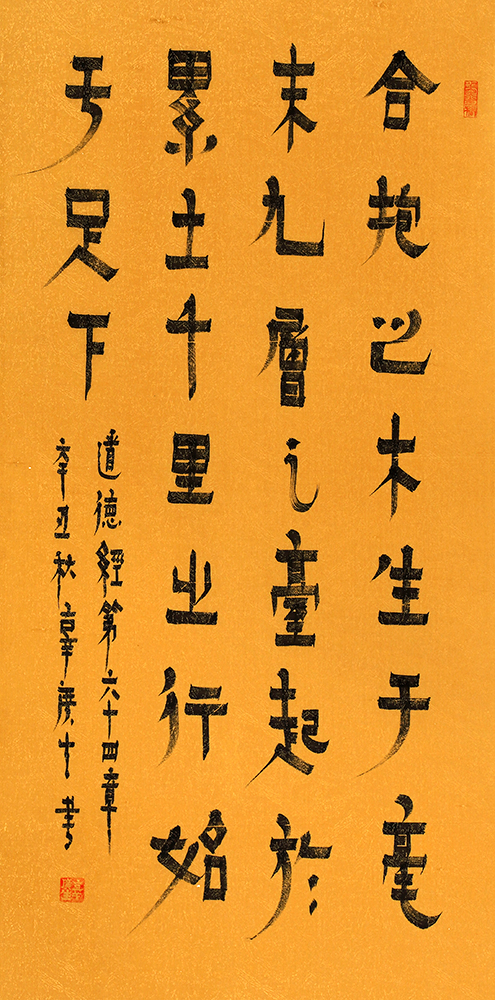 合抱之木生于毫
末九層之臺起於
累土千里之行始
于足下
道德經第六十四章
辛丑秋廣士書